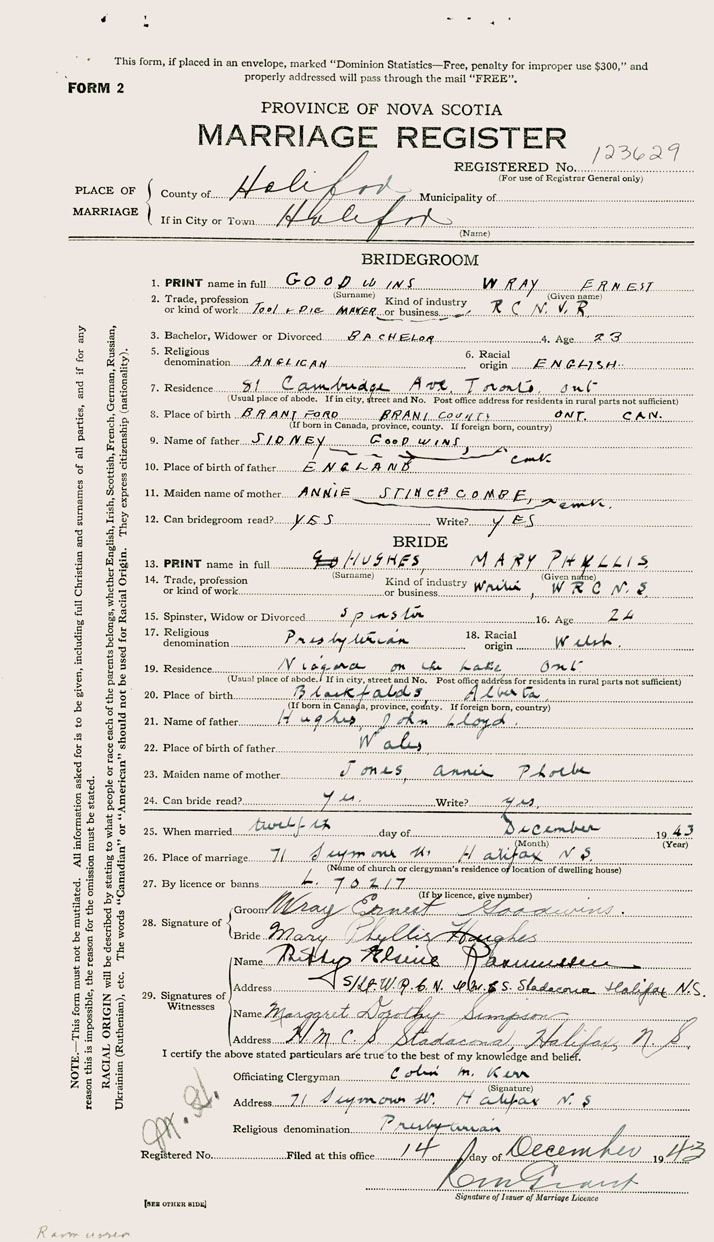 This form, if placed in an envelope, marked "Dominion Statistics—Free, penalty for improper use $300," and
properly addressed will pass through the mail "FREE".
FORM 2
PROVINCE OF NOVA SCOTIA
MARRIAGE REGISTER
REGISTERED No. 123629
(For use of Registrar General only)
PLACE OF MARRIAGE
County of Halifax Municipality of
If in City or Town Halifax
(Name)
BRIDEGROOM
1. PRINT name in full GOODWINS WRAY ERNEST
(Surname) (Given name)
2. Trade, profession or kind of work TOOL & DIE MAKER Kind of industry or business R C N V R
3. Bachelor, Widower or Divorced BACHELOR 4. Age 23
5. Religious denomination ANGLICAN 6. Racial origin ENGLISH
7. Residence 81 Cambridge Ave. Toronto, Ont
(Usual place of abode. If in city, street and No. Post office address for residents in rural parts not sufficient)
8. Place of birth BRANTFORD BRANT COUNTY ONT. CAN.
(If born in Canada, province, county. If foreign born, country)
9. Name of father SIDNEY GOODWINS
10. Place of birth of father ENGLAND cmk
11. Maiden name of mother ANNIE STINCHCOMBE, cmk.
12. Can bridegroom read? YES Write? YES
BRIDE
13. PRINT name in full HUGHES, MARY PHYLLIS
(Surname) (Given name)
14. Trade, profession or kind of work Kind of industry or business Writer, W R C N S
15. Spinster, Widow or Divorced Spinster 16. Age 24
17. Religious denomination Presbyterian 18. Racial origin Welsh.
19. Residence Niagara on the Lake Ont
(Usual place of abode. If in city, street and No. Post office address for residents in rural parts not sufficient)
20. Place of birth Blackfalds, Alberta
(If born in Canada, province, county. If foreign born, country)
21. Name of father Hughes, John Lloyd.
22. Place of birth of father Wales
23. Maiden name of mother Jones, Annie Phoebe
24. Can bride read? yes. Write? yes.
25. When married twelfth day of December 1943
(Month) (Year)
26. Place of marriage 71 Seymour St. Halifax N.S.
(Name of church or clergyman's residence or location of dwelling house)
27. By licence or banns L. 70217
(If by licence, give number)
28. Signature of
Groom Wray Ernest Goodwins.
Bride Mary Phyllis Hughes
29. Signatures of Witnesses
Name Betty Elsine Rasmussen
Address H.M.C.S. Stadacona Halifax N.S.
Name Margaret Dorothy Simpson
Address H M C S Stadacona, Halifax, N.S.
I certify the above stated particulars are true to the best of my knowledge and belief.
Officiating Clergyman Colin M. Kerr
(Signature)
Address 71 Seymour St. Halifax N.S
Religious denomination Presbyterian
Registered No. Filed at this office 14 day of December 1943
Signature of Issuer of Marriage Licence
[SEE OTHER SIDE]
Rasmussen
NOTE.—This form must not be mutilated. All information asked for is to be given, including full Christian and surnames of all parties, and if for any
reason this is impossible, the reason for the omission must be stated.
RACIAL ORIGIN will be described by stating to what people or race each of the parents belongs, whether English, Irish, Scottish, French, German, Russian,
Ukrainian (Ruthenian), etc. The words "Canadian" or "American" should not be used for Racial Origin. They express citizenship (nationality).